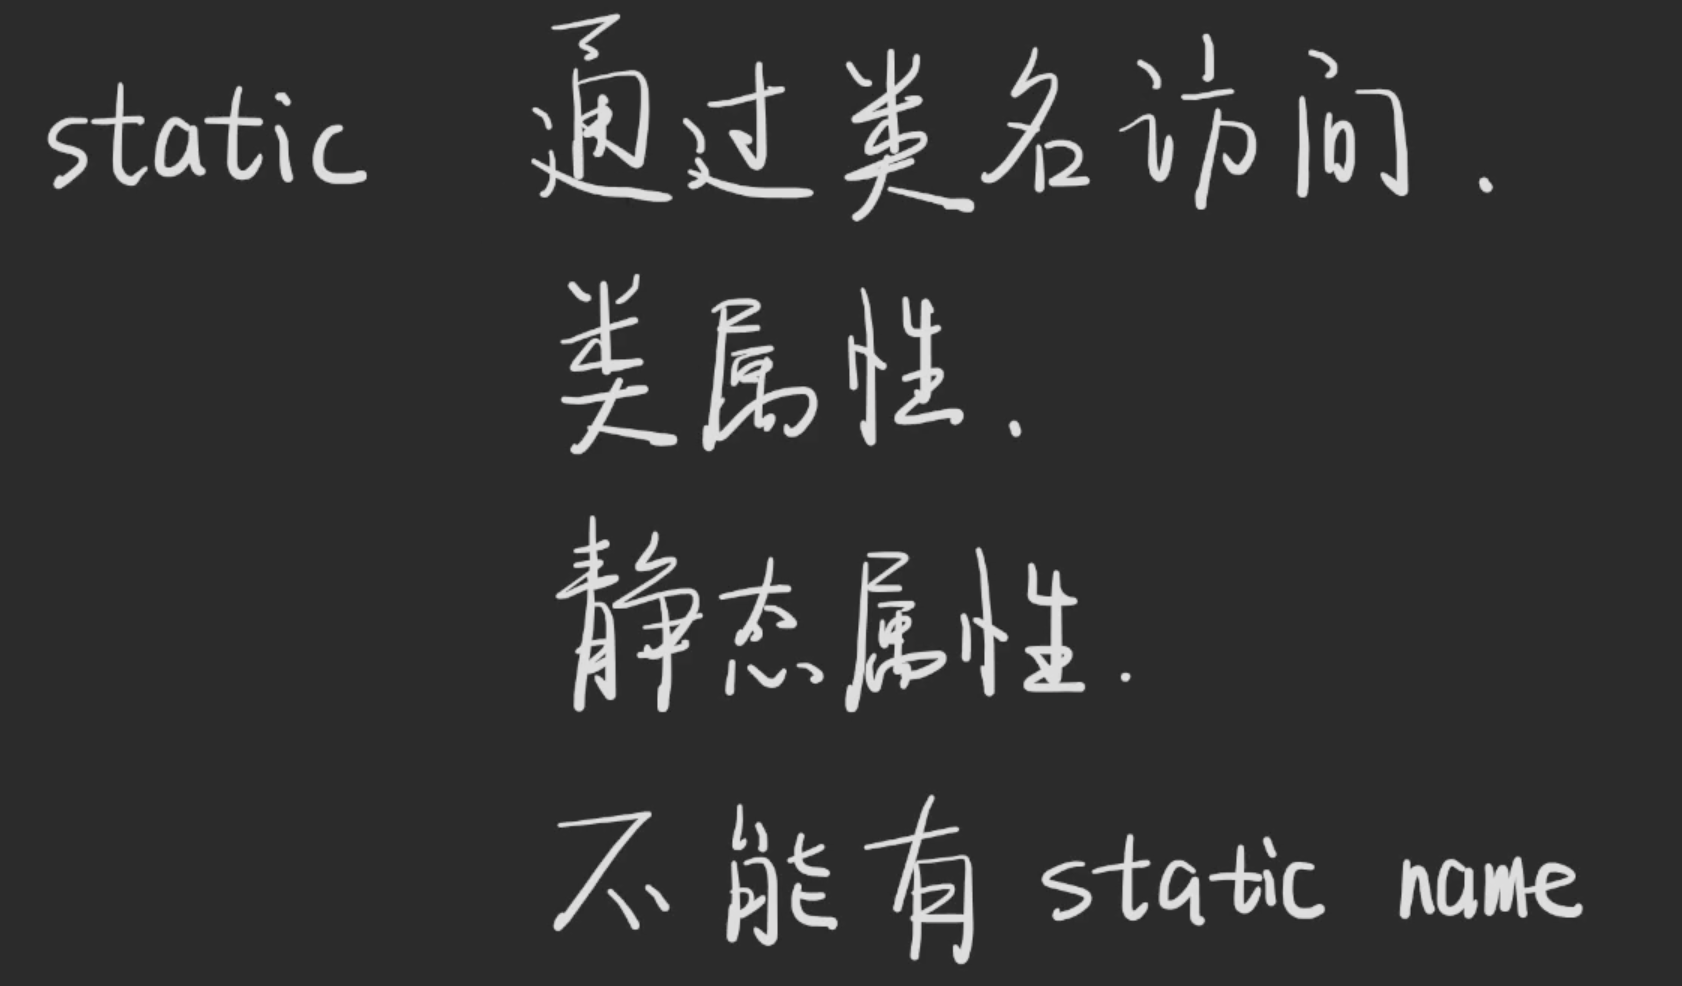 static 通过类名访问.
类属性.
静态属性.
不能有 static name